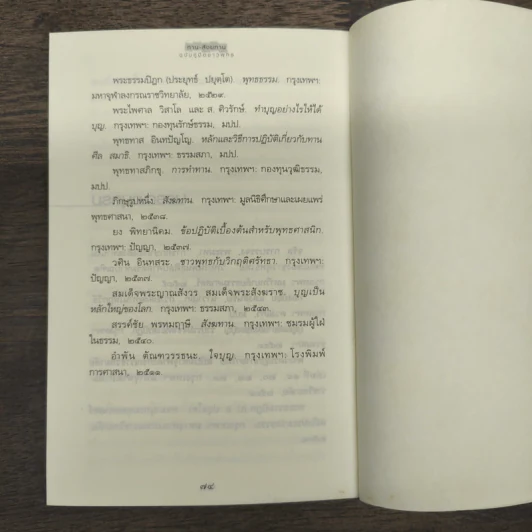 ทาน-สังฆทาน
พระธรรมปิฎก (ประยุทธ์ ปยุตฺโต) พุทธธรรม. กรุงเทพฯ:
มหาจุฬาลงกรณราชวิทยาลัย, ๒๕๒๙.
พระไพศาล วิสาโล และ ส. ศิวรักษ์. ทำบุญอย่างไรให้ได้
บุญ. กรุงเทพฯ: กองทุนรักษ์ธรรม, มปป.
พุทธทาส อินทปัญโญ. หลักและวิธีการปฏิบัติเกี่ยวกับทาน
ศีล สมาธิ. กรุงเทพฯ: ธรรมสภา, มปป.
พุทธทาสภิกขุ. การทำทาน. กรุงเทพฯ: กองทุนวุฒิธรรม,
มปป.
ภิกษุรูปหนึ่ง. สังฆทาน กรุงเทพฯ: มูลนิธิศึกษาและเผยแพร่
พุทธศาสนา, ๒๕๓๘.
ยง พิทยานิคม. ข้อปฏิบัติเบื้องต้นสำหรับพุทธศาสนิก.
กรุงเทพฯ: ปัญญา, ๒๕๓๗.
วศิน อินทสระ. ชาวพุทธกับวิกฤติศรัทธา. กรุงเทพฯ:
ปัญญา, ๒๕๓๗.
สมเด็จพระญาณสังวร สมเด็จพระสังฆราช. บุญเป็น
หลักใหญ่ของโลก. กรุงเทพฯ: ธรรมสภา, ๒๕๔๓.
สรรค์ชัย พรหมฤๅษี. สังฆทาน. กรุงเทพฯ: ชมรมผู้ใฝ่
ในธรรม, ๒๕๔๐.
อำพัน ตัณฑวรรธนะ. ใจบุญ. กรุงเทพฯ: โรงพิมพ์
การศาสนา, ๒๕๑๑.
๗๔